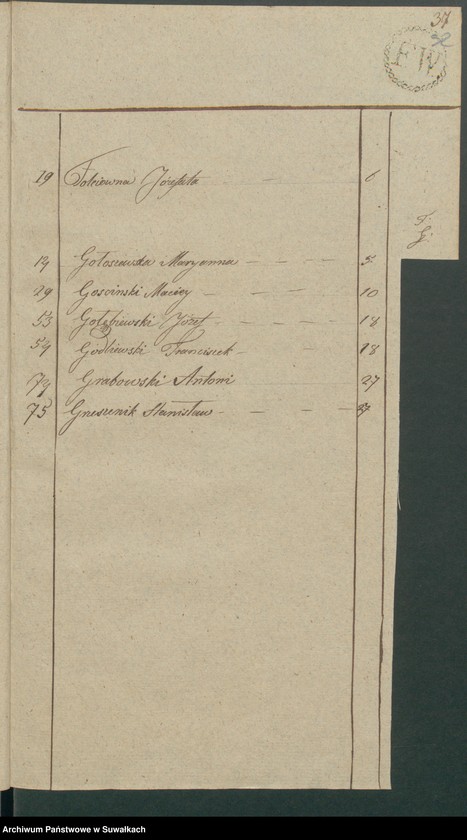 37
2
FW
19 Józefata 6
F.
G.
14 Gołoszewska Maryanna 5
29 Gosciński Maciey 10
53 Gołębiewski Józef 18
54 Godlewski Franciszek 18
74 Grabowski Antoni 27
75 Stanisław
Archiwum Państwowe w Suwałkach